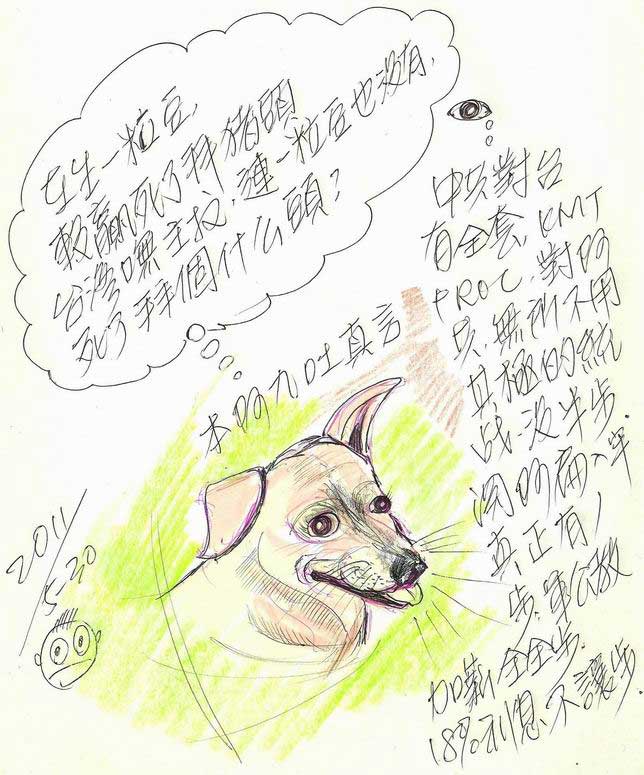 在生一粒豆,
較贏死了拜豬頭
台灣嘸主权,連一粒豆也沒有,
死了拜個什么頭?
本阿九吐真言
中共對台
有全套, KMT
對阿
共,無所不用
其極的統
战,沒半步
阿扁八年
真正有
步,軍公教
加薪全全步.
18%利息不讓步
2011/5.20